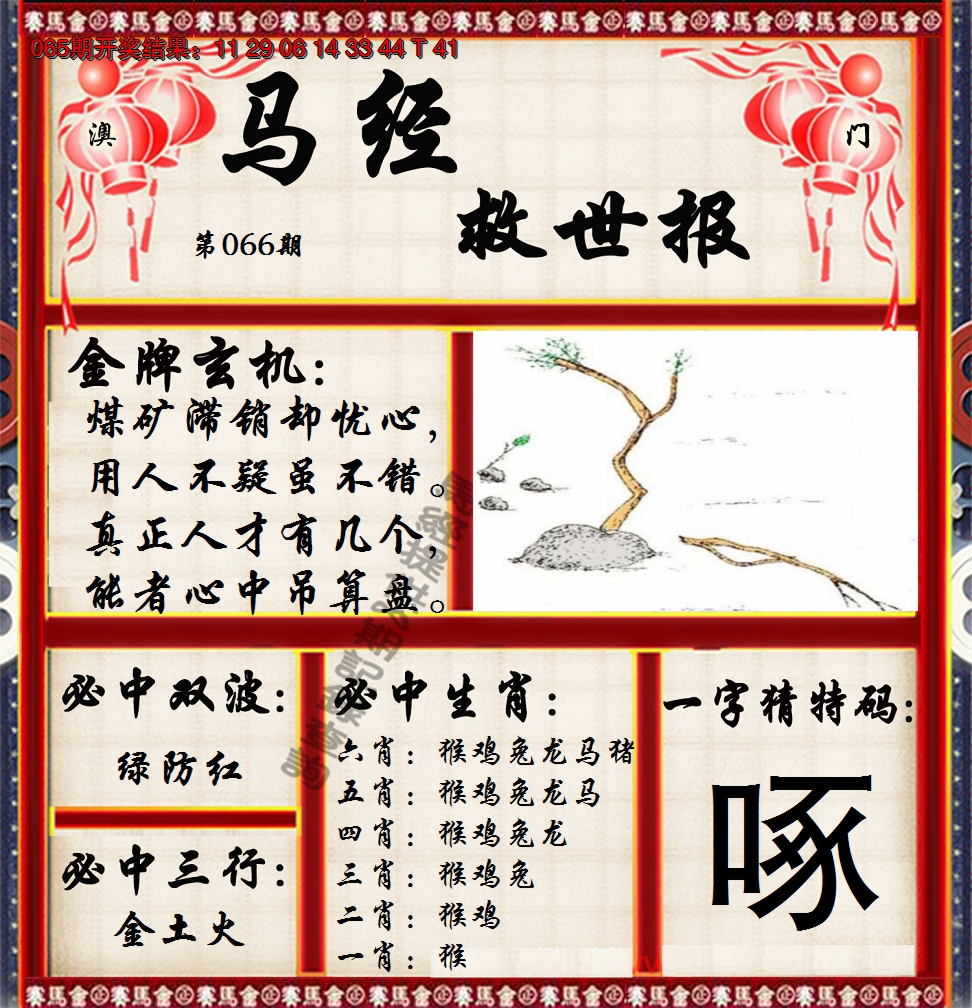 065期开奖结果：11 29 06 14 33 44 T 41
澳
门
马经
救世报
第066期
金牌玄机：
煤矿滞销却忧心，
用人不疑虽不错。
真正人才有几个，
能者心中吊算盘。
必中双波：
绿防红
必中三行：
金土火
必中生肖：
六肖：猴鸡兔龙马猪
五肖：猴鸡兔龙马
四肖：猴鸡兔龙
三肖：猴鸡兔
二肖：猴鸡
一肖：猴
一字猜特码：
啄